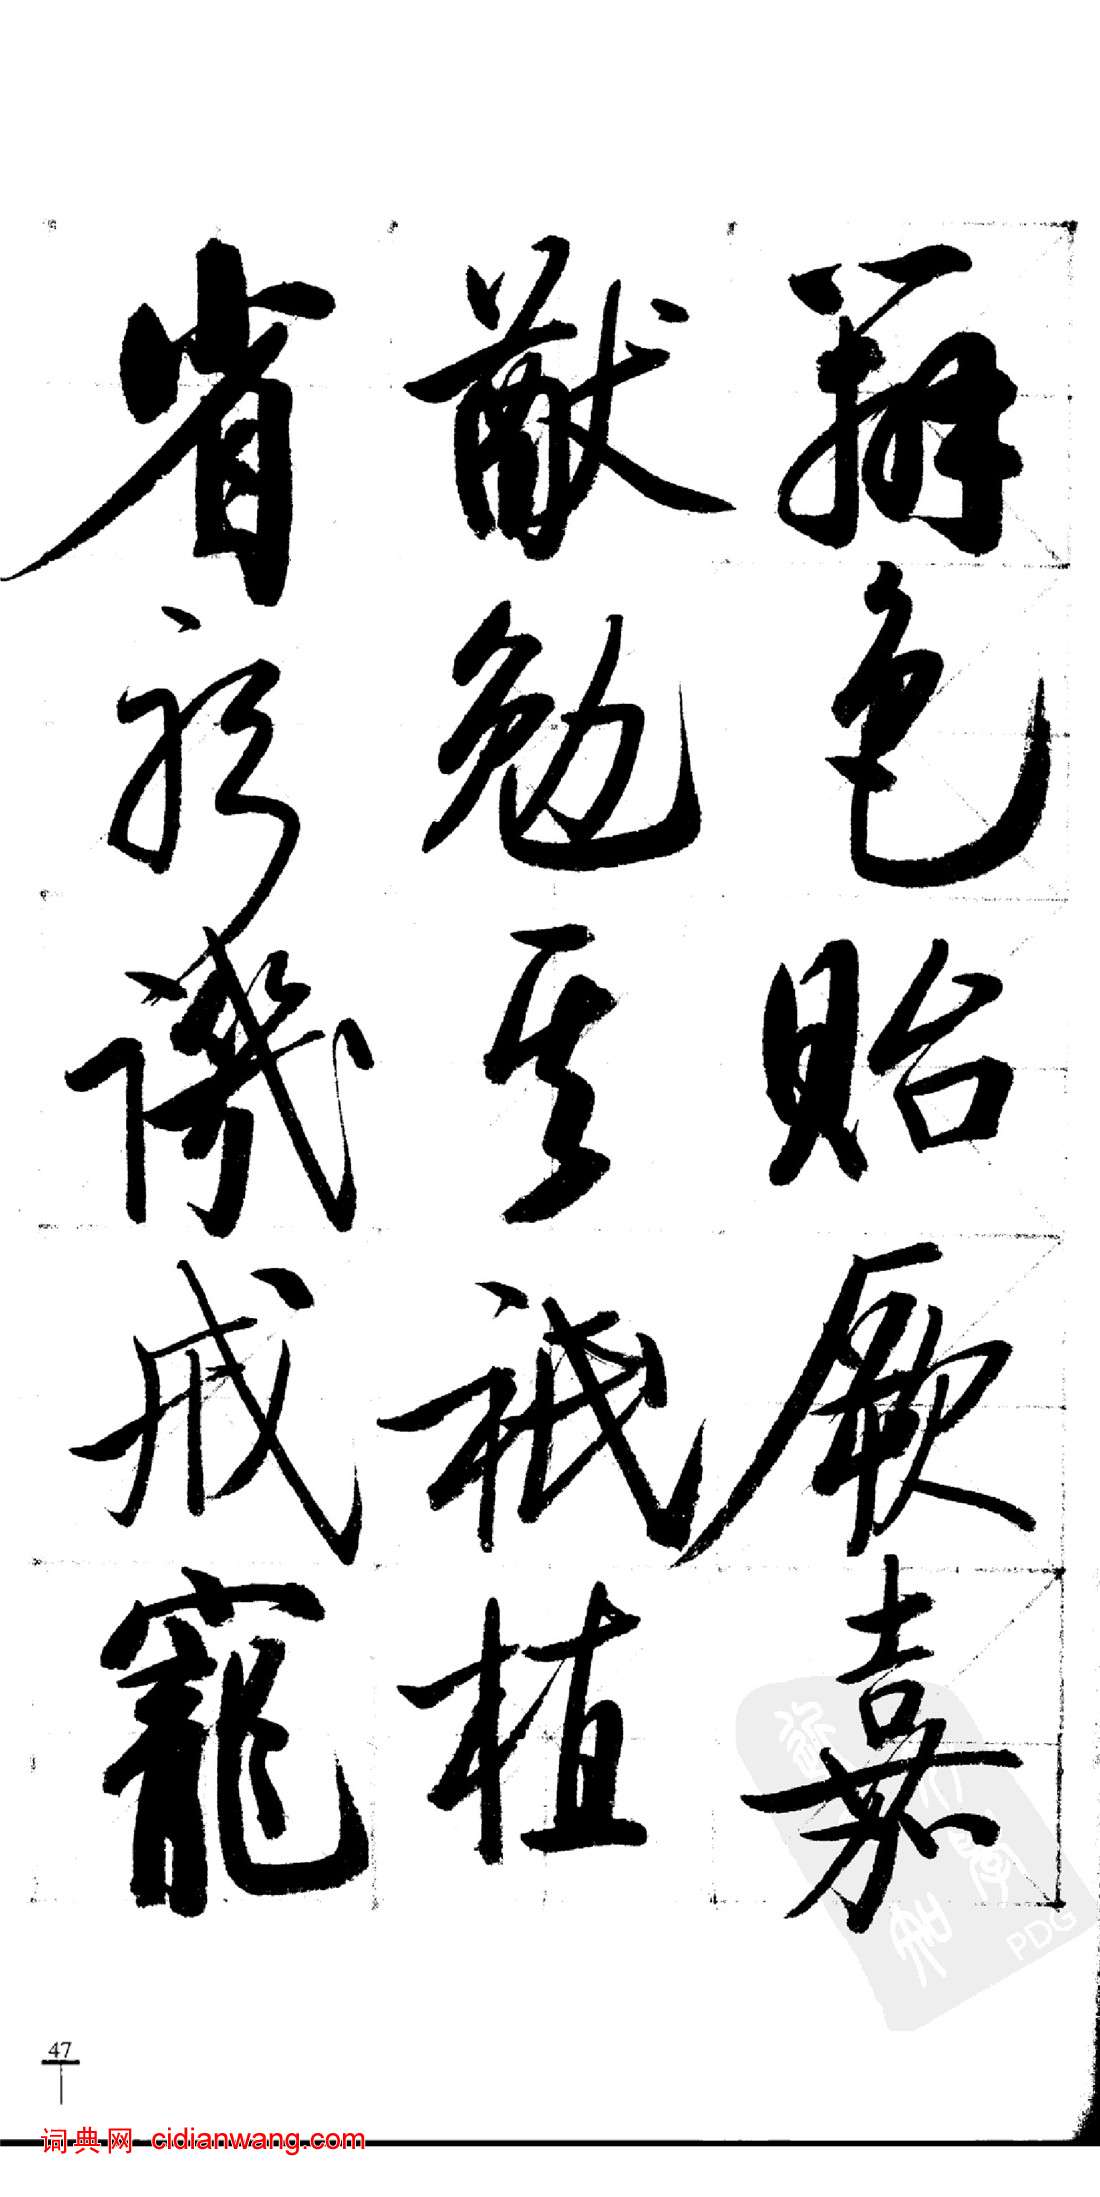 辨色貽厥嘉
猷勉其祗植
省躬譏戒寵
47
词典网 cidianwang.com
PDG